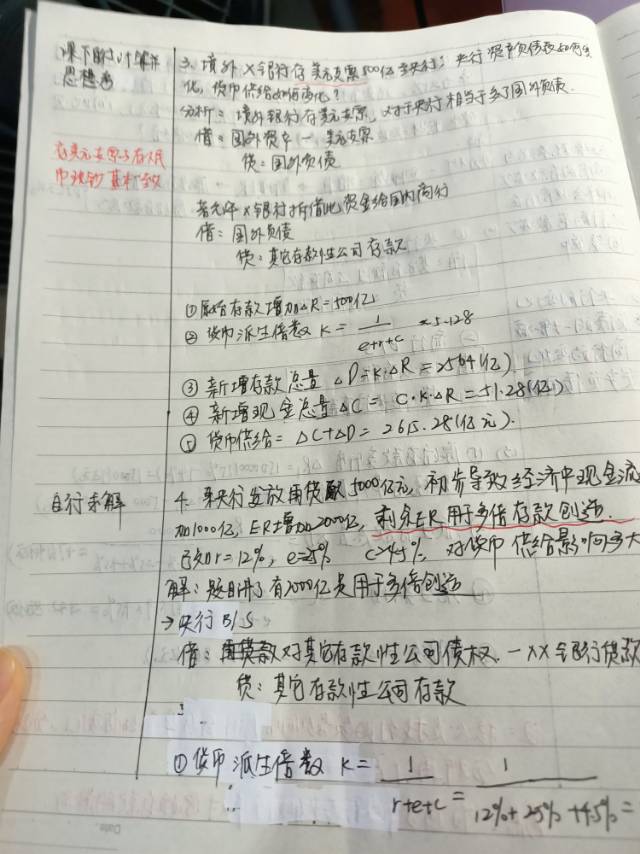 课下附计算并
思想为
存美元支票与存人民
币现钞基本一致
3. 境外X银行存美元支票500亿至央行：央行资产负债表如何变
化，货币供给如何变化？
分析：境外银行存美元支票，对于央行相当于多了国外负债.
借：国外资产 — 美元支票
贷：国外负债
若允许X银行拆借此资金给国内商行
借：国外负债
贷：其它存款性公司存款
①原始存款增加△R=500亿
②货币派生倍数 K = 1/(e+r+c) ≈ 5.128
③新增存款总量 △D=K·△R=2564(亿)
④新增现金总量△C= C·K·△R=51.28(亿)
⑤货币供给=△C+△D=2615.28(亿元).
自行求解
4. 某央行发放再贷款5000亿元，初步导致经济中现金流
加1000亿，ER增加2000亿，剩余ER用于多倍存款创造.
已知r=12%，e=25% c=4.5%，对货币供给影响多大
解：题目讲了有2000亿是用于多倍创造
→央行B/S
借：对其它存款性公司债权 — XX银行贷款
贷：其它存款性公司存款
①货币派生倍数 K = 1/(r+e+c) = 1/(12%+25%+4.5%) =